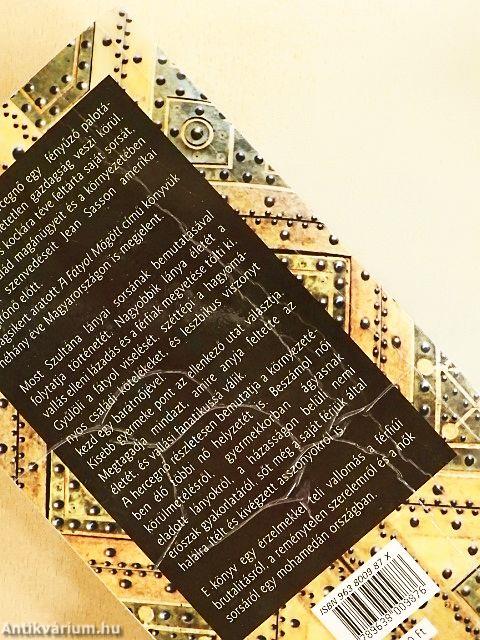 hercegnő egy fényűző palotá-
etetlen gazdagság veszi körül.
kockára téve feltárta saját sorsát,
lád magánügyeit és a környezetében
szenvedéseit Jean Sasson amerikai
írónő előtt.
gsikert aratott A Fátyol Mögött című könyvük
néhány éve Magyarországon is megjelent.
Most Szultána lányai sorsának bemutatásával
folytatja történetét. Nagyobbik lánya életét a
vallás elleni lázadás és a férfiak megvetése tölti ki.
Gyűlöli a fátyol viselését, széttépi a hagyomá-
nyos családi kötelékeket, és leszbikus viszonyt
kezd egy barátnőjével.
Kisebb gyermeke pont az ellenkező utat választja.
Megtagadja mindazt, amire anyja feltette az
életét, és vallási fanatikussá válik.
A hercegnő részletesen bemutatja a környezeté-
ben élő többi nő helyzetét is. Beszámol női
körülmetélésről, gyermekkorban ágyasnak
eladott lányokról, a házasságon belüli nemi
erőszak gyakorlatáról, sőt még a saját férjük által
halálra ítélt és kivégzett asszonyokról is.
E könyv egy érzelmekkel teli vallomás a férfiúi
brutalitásról, a reménytelen szerelemről és a nők
sorsáról egy mohamedán országban.
ISBN 963 8009 87 X
9789638009876
Ft
Antikvárium.hu